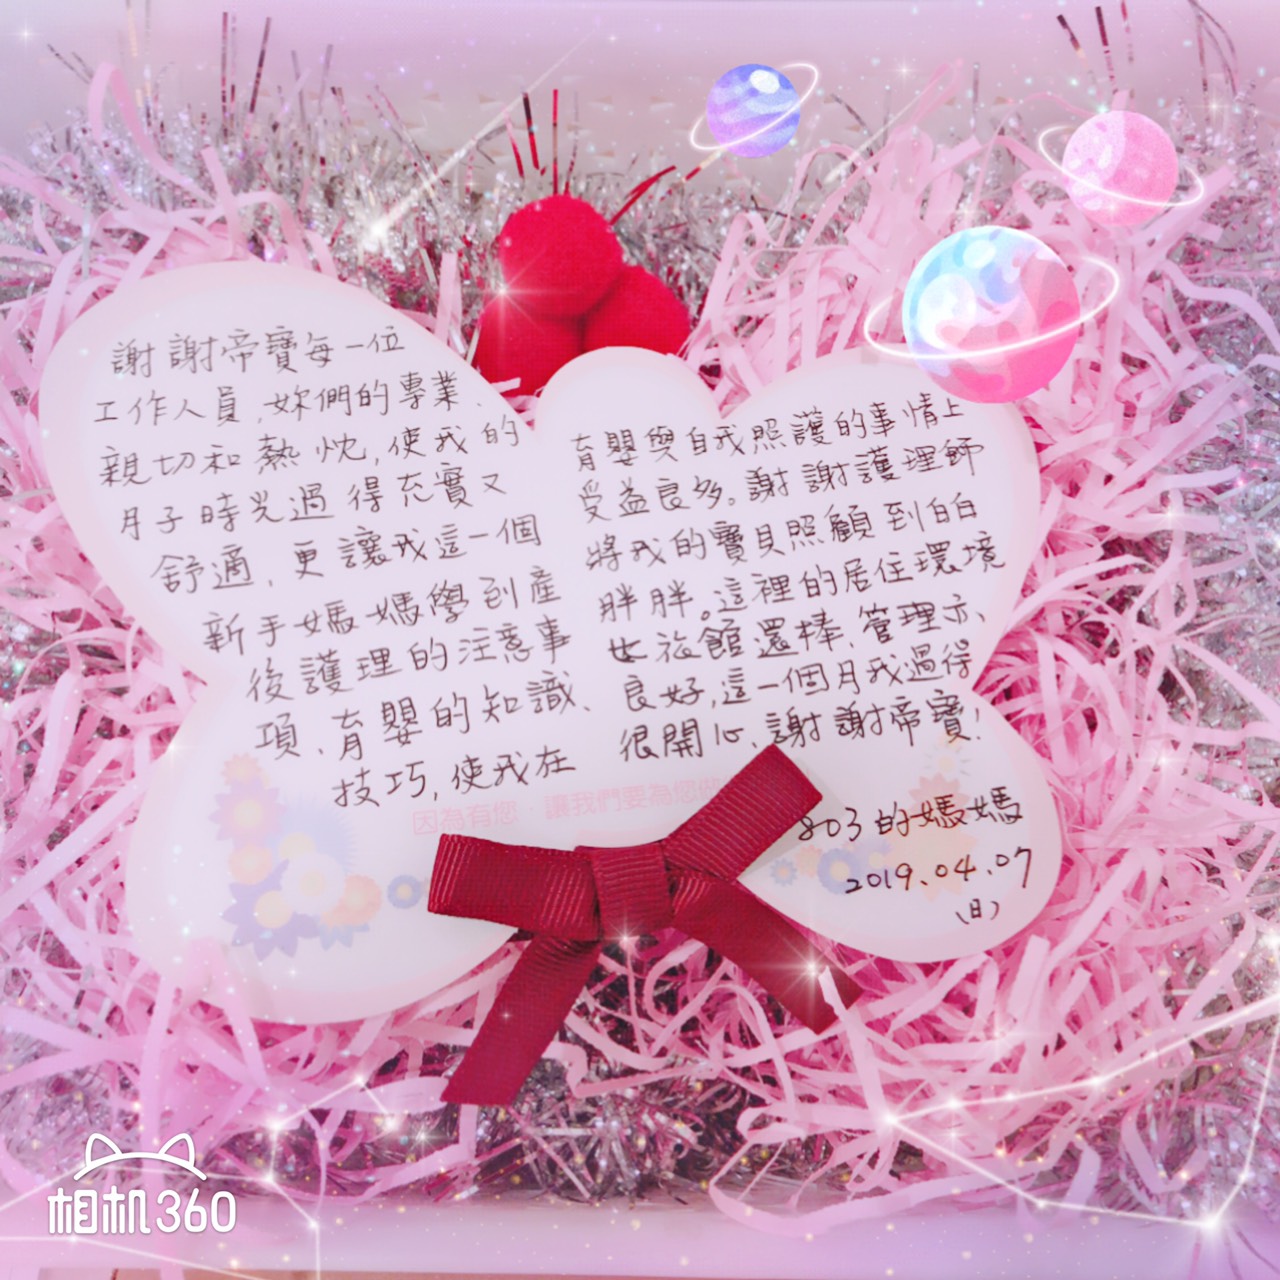 謝謝帝寶每一位
工作人員,妳們的專業、
親切和熱忱,使我的
月子時光過得充實又
舒適,更讓我這一個
新手媽媽學到產
後護理的注意事
項、育嬰的知識、
技巧,使我在
育嬰與自我照護的事情上
受益良多。謝謝護理師
將我的寶貝照顧到白白
胖胖。這裡的居住環境
比旅館還棒、管理亦
良好,這一個月我過得
很開心、謝謝帝寶!
因為有您‧讓我們要為您做
803的媽媽
2019.04.07
(日)
相机360